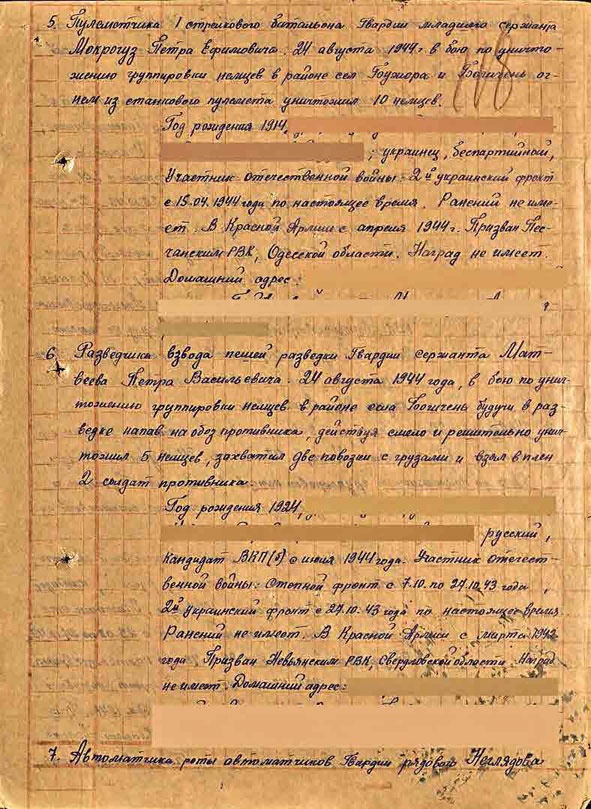 5. Пулеметчика 1 стрелкового батальона Гвардии младшего сержанта
Мокрогуз Петра Ефимовича. 24 августа 1944 г в бою по уничто-
жению группировки немцев в районе сел и Богичень ог-
нем из станкового пулемета уничтожил 10 немцев.
Год рождения 1914,
; украинец, беспартийный,
Участник отечественной войны: 2й украинский фронт
с 15.04.1944 года по настоящее время. Ранений не име-
ет. В Красной Армии с апреля 1944 г. Призван Пес-
чанским РВК, Одесской области. Наград не имеет.
Домашний адрес:
6. Разведчика взвода пешей разведки Гвардии сержанта Мат-
веева Петра Васильевича. 24 августа 1944 года, в бою по уни-
тожению группировки немцев в районе села Богичень будучи в раз-
ведке напав на обоз противника, действуя смело и решительно унич-
тожил 5 немцев, захватил две повозки с грузами и взял в плен
2 солдат противника.
Год рождения 1924,
русский,
кандидат ВКП(б) с июля 1944 года. Участник отечест-
венной войны: Степной фронт с 7.10. по 27.10.43 года,
2й украинский фронт с 27.10.43 года по настоящее время
Ранений не имеет. В Красной Армии с марта
года Призван Невьянским РВК, Свердловской области Наград
не имеет. Домашний адрес:
7. Автоматчика роты автоматчиков Гвардии рядового Неглядова